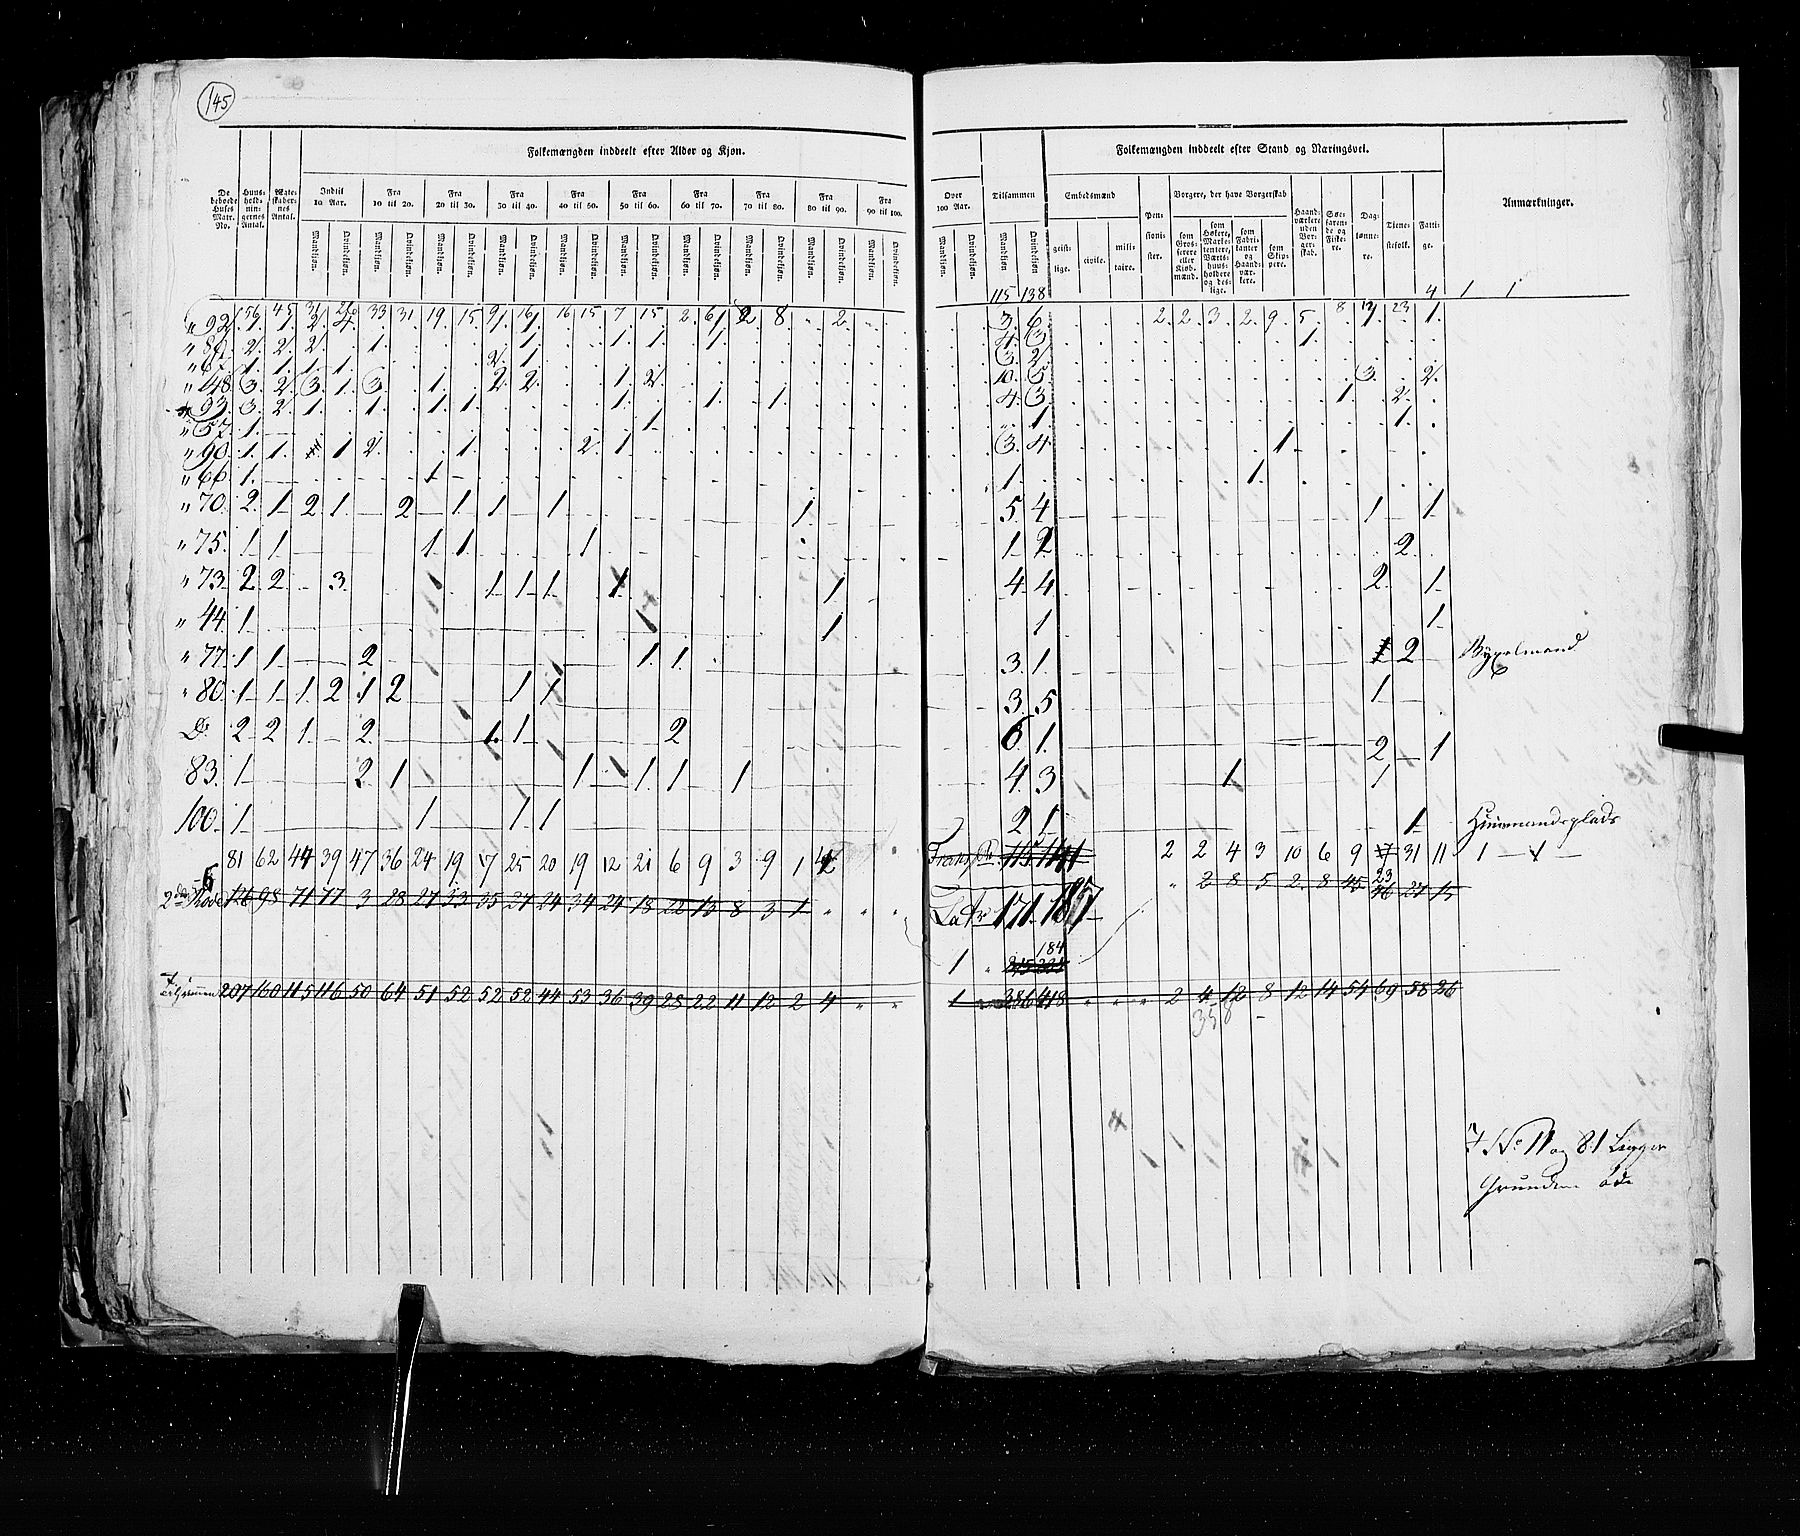 145
Folkemængden inddeelt efter Alder og Kjøn.
Folkemængden inddeelt efter Stand og Næringsvei.
De beboede Huses Matr. No.
Huusholdningernes Antal.
Ægteskabernes Antal.
Indtil 10 Aar.
Fra 10 til 20.
Fra 20 til 30.
Fra 30 til 40.
Fra 40 til 50.
Fra 50 til 60.
Fra 60 til 70.
Fra 70 til 80.
Fra 80 til 90.
Fra 90 til 100.
Over 100 Aar.
Tilsammen
Embedsmænd
geistlige.
civile.
militaire.
Pensionister.
Borgere, der have Borgerskab
som Grosserere eller Kjøbmænd.
som Høkere, Marketentere, Værtshuusholdere og deslige.
som Fabrikanter og Haandværkere.
som Skippere.
Haandværkere uden Borgerskab.
Søefarende og Fiskere.
Daglønnere.
Tienestefolk.
Fattige.
Anmærkninger.
Mandkjøn. Qvindekjøn. Mandkjøn. Qvindekjøn. Mandkjøn. Qvindekjøn. Mandkjøn. Qvindekjøn. Mandkjøn. Qvindekjøn. Mandkjøn. Qvindekjøn. Mandkjøn. Qvindekjøn. Mandkjøn. Qvindekjøn. Mandkjøn. Qvindekjøn. Mandkjøn. Qvindekjøn. Mandkjøn. Qvindekjøn. Mandkjøn. Qvindekjøn.
56 45 33 31 19 15 9 16 16 15 7 15 2 6 2 8 2 115 138 2 2 3 2 9 5 8 17 23 4 1 1
" 92. 1 1 2 4 1 1 1 3 6 1
2 2 2 1 1 1 1 1 4 3 1
1 1 1 1 2 1 3 2
" 48. 3 2 3 1 3 1 2 2 1 2 10 5 3 2
93. 3 2 1 1 1 1 1 1 1 4 3 1 2
" 57. 1 1 1 1
" 90. 1 1 1 2 1 2 1 3 4 1
" 66 1 1 1 1
" 70. 2 1 2 1 2 1 1 1 1 5 4 1 1
" 75. 1 1 1 1 1 1 2 2
" 73. 2 2 3 1 1 1 1 1 4 4 2 1
" 44. 1 1 1 1
" 77. 1 1 2 1 1 3 1 2
" 80. 1 1 1 2 1 2 1 1 3 5 1
Do 2 2 1 2 1 1 2 6 1 2 1
83. 1 2 1 1 1 1 1 4 3 1 1
100. 1 1 1 1 2 1 1 Huusmandsplads
81 62 44 39 47 36 24 19 17 25 20 19 12 21 6 9 3 9 1 4 Transp 115 2 2 4 3 10 6 9 31 11 1
6
2den Rode 126 98 71 77 3 28 27 33 35 27 24 34 24 18 22 13 8 3 1 " " " 171 2 8 5 2 8 45 46 27 15
23
184
1
Tilsammen 207 160 115 116 50 64 51 52 52 52 44 53 36 39 28 22 11 12 2 4 " " 1 386 418 " " " 2 4 12 8 12 14 54 69 58 26
35 8
No 11 og 81 Ligger
Grunden øde